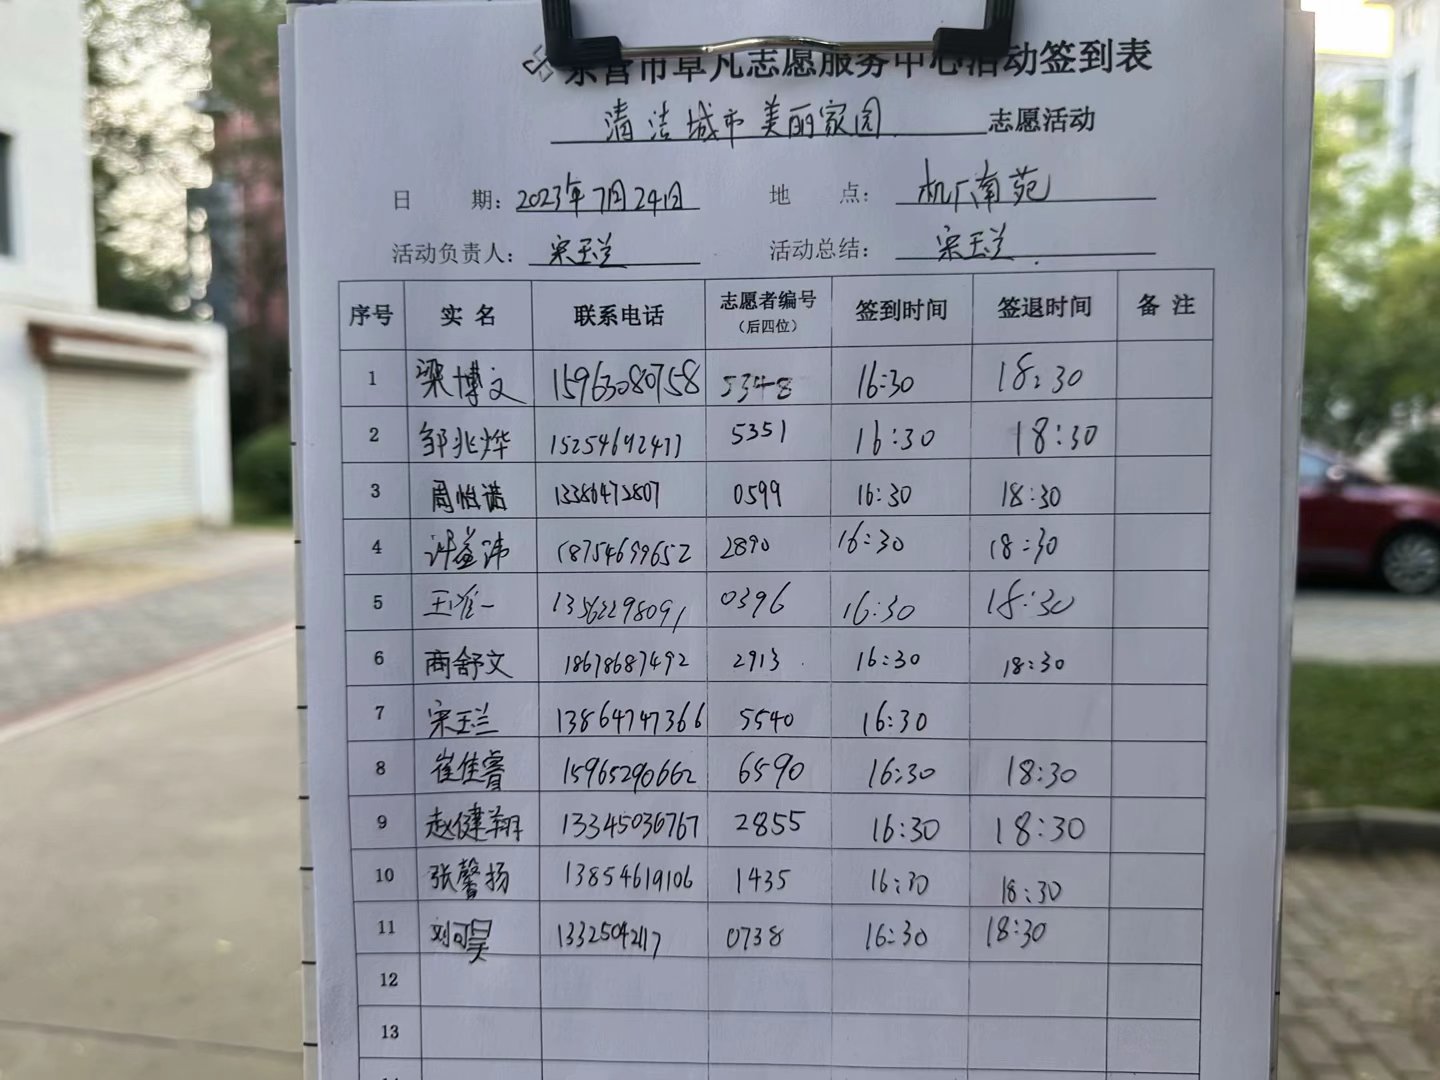 东营市草凡志愿服务中心活动签到表
清洁城市美丽家园 志愿活动
日 期：2023年7月24日 地 点：机厂南苑
活动负责人：宋玉兰 活动总结：宋玉兰
序号 实 名 联系电话 志愿者编号（后四位） 签到时间 签退时间 备 注
1 梁博文 15963080758 5348 16:30 18:30
2 邹兆烨 15254692477 5351 16:30 18:30
3 周怡诺 13386472807 0599 16:30 18:30
4 许益玮 18754699652 2890 16:30 18:30
5 王淮一 13563298091 0396 16:30 18:30
6 商舒文 18678687492 2913 16:30 18:30
7 宋玉兰 13864747366 5540 16:30
8 崔佳睿 15965290662 6590 16:30 18:30
9 赵健翔 13345036767 2855 16:30 18:30
10 张馨扬 13854619106 1435 16:30 18:30
11 刘可昊 13325042117 0738 16:30 18:30
12
13